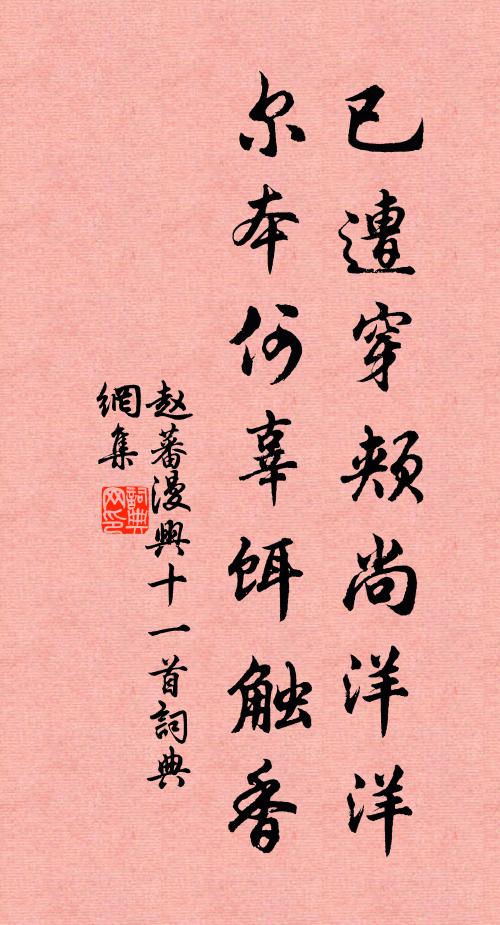 已遭穿颊尚洋洋
尔本何辜饵触香
赵蕃漫興十一首詞典
網集
詞典网印